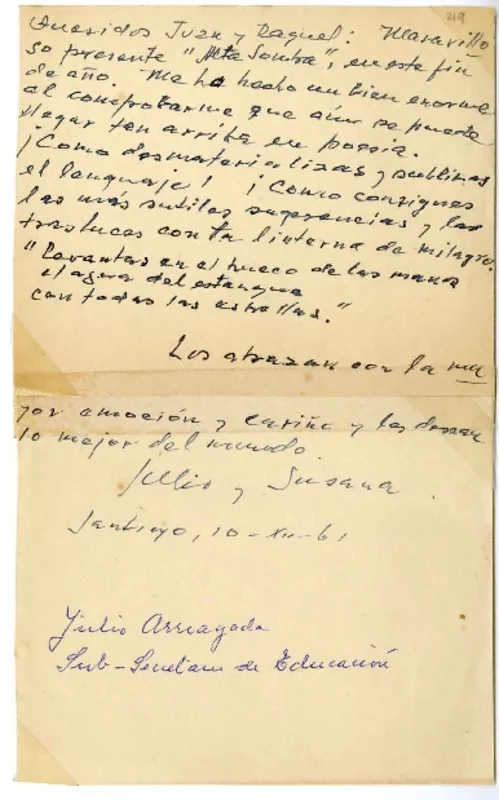 219
Queridos Juan y Raquel: Maravillo
so presente "Alta Sombra", en este fin
de año. Me ha hecho un bien enorme
al comprobarme que aún se puede
llegar tan arriba en poesía.
¡Como desmaterializas y sublimas
el lenguaje! ¡Como consigues
las más sutiles sugerencias y las
trasluces con tu linterna de milagro!
"Levantas en el hueco de las manos
el agua del estanque
con todas las estrellas."
Los abrazan con la ma
yor emoción y cariño y les desean
lo mejor del mundo.
Julio y Susana.
Santiago, 10-XII-61
Julio Arriagada
Sub-Secretario de Educación